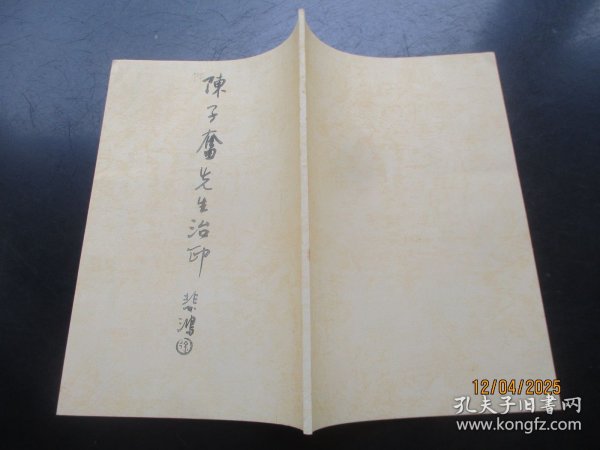 陳子奮先生治印
悲鴻
12/04/2025
孔夫子旧書网
www.kongfz.com